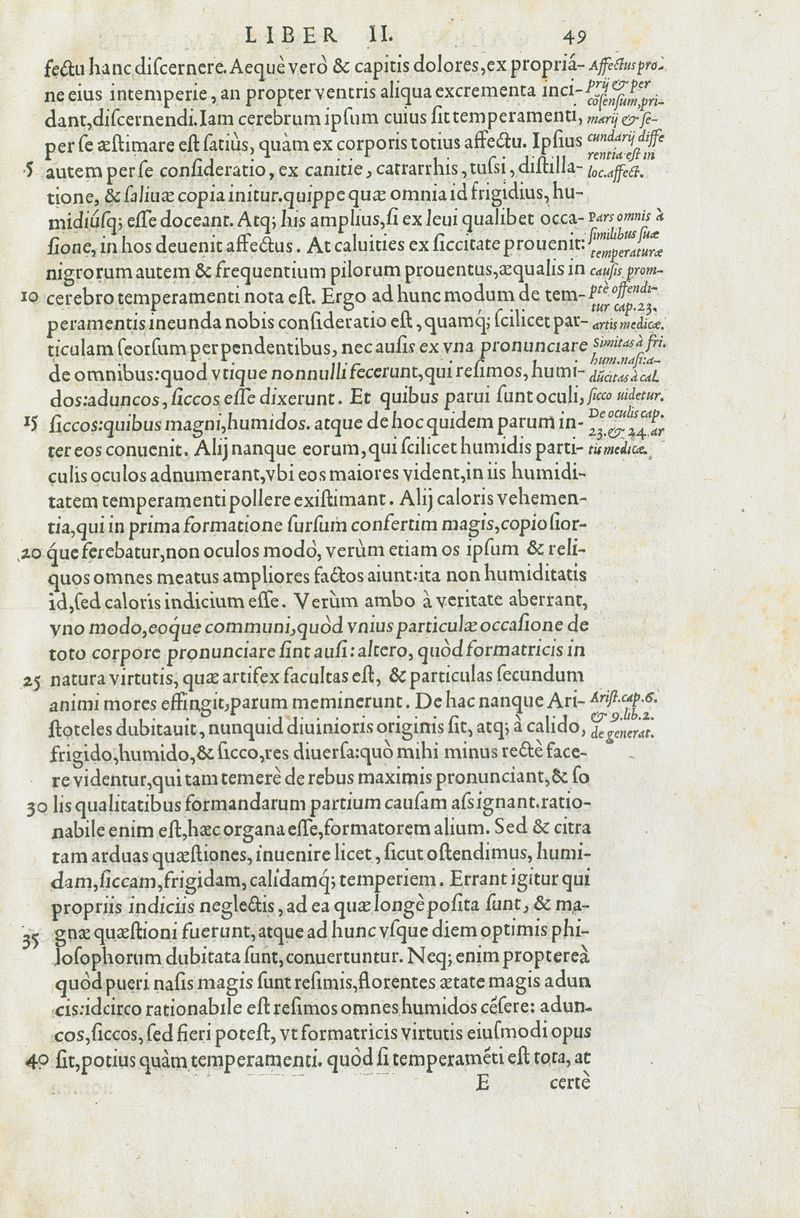 LIBER II. 49
fectu hanc diſcernere. Aequè verò & capitis dolores, ex propriá-
ne eius intemperie, an propter ventris aliqua excrementa inci-
dant, diſcernendi. Iam cerebrum ipſum cuius ſit temperamenti,
per ſe æſtimare eſt ſatiùs, quàm ex corporis totius affectu. Ipſius
5 autem per ſe conſideratio, ex canitie, catrarrhis, tuſsi, diſtilla-
tione, & ſaliuæ copia initur. quippe quæ omnia id frigidius, hu-
midiúſq; eſſe doceant. Atq; his amplius, ſi ex leui qualibet occa-
ſione, in hos deuenit affectus. At caluities ex ſiccitate prouenit:
nigrorum autem & frequentium pilorum prouentus, æqualis in
10 cerebro temperamenti nota eſt. Ergo ad hunc modum de tem-
peramentis ineunda nobis conſideratio eſt, quamq́; ſcilicet par-
ticulam ſeorſum perpendentibus, nec auſis ex vna pronunciare
de omnibus: quod vtique nonnulli fecerunt, qui reſimos, humi-
dos: aduncos, ſiccos eſſe dixerunt. Et quibus parui ſunt oculi,
15 ſiccos: quibus magni, humidos. atque de hoc quidem parum in-
ter eos conuenit. Alij nanque eorum, qui ſcilicet humidis parti-
culis oculos adnumerant, vbi eos maiores vident, in iis humidi-
tatem temperamenti pollere exiſtimant. Alij caloris vehemen-
tia, qui in prima formatione ſurſum confertim magis, copioſior-
20 q́ue ferebatur, non oculos modò, verùm etiam os ipſum & reli-
quos omnes meatus ampliores factos aiunt: ita non humiditatis
id, ſed caloris indicium eſſe. Verùm ambo à veritate aberrant,
vno modo, eoq́ue communi, quòd vnius particulæ occaſione de
toto corpore pronunciare ſint auſi: altero, quòd formatricis in
25 natura virtutis, quæ artifex facultas eſt, & particulas ſecundum
animi mores effingit, parum meminerunt. De hac nanque Ari-
ſtoteles dubitauit, nunquid diuinioris originis ſit, atq; à calido,
frigido, humido, & ſicco, res diuerſa: quò mihi minus rectè face-
re videntur, qui tam temerè de rebus maximis pronunciant, & ſo
30 lis qualitatibus formandarum partium cauſam aſsignant. ratio-
nabile enim eſt, hæc organa eſſe, formatorem alium. Sed & citra
tam arduas quæſtiones, inuenire licet, ſicut oſtendimus, humi-
dam, ſiccam, frigidam, calidamq́; temperiem. Errant igitur qui
propriis indiciis neglectis, ad ea quæ longè poſita ſunt, & ma-
35 gnæ quæſtioni fuerunt, atque ad hunc vſque diem optimis phi-
loſophorum dubitata ſunt, conuertuntur. Neq; enim propterea
quòd pueri naſis magis ſunt reſimis, florentes ætate magis adun
cis: idcirco rationabile eſt reſimos omnes humidos cẽſere: adun-
cos, ſiccos, ſed fieri poteſt, vt formatricis virtutis eiuſmodi opus
40 ſit, potius quàm temperamenti. quòd ſi temperamẽti eſt tota, at
E certè
Affectus pro-
prij & per
cõſenſum, pri-
marij & ſe-
cundarij diffe
rentia eſt in
loc. affect.
Pars omnis à
ſimilibus ſuæ
temperaturæ
cauſis prom-
ptè offendi-
tur cap. 23.
artis medicæ.
Simitas à fri.
hum. naſi: a-
dũcitas à cal.
ſicco uidetur.
De oculis cap.
23. & 24. ar
tis medicæ.
Ariſt. cap. 6.
& 9. lib. 2.
de generat.